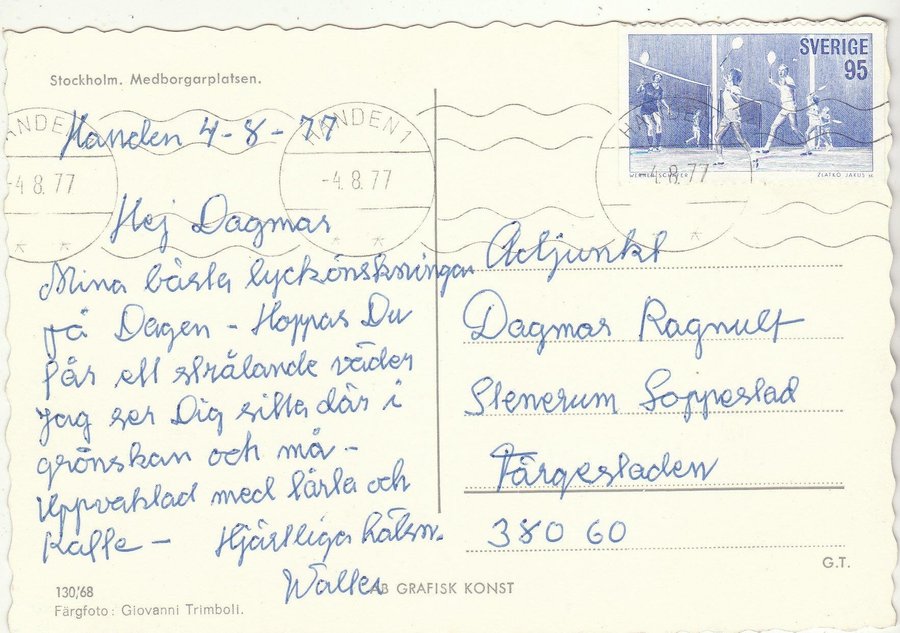 Stockholm. Medborgarplatsen.
SVERIGE
95
WERNER SCHÄFER ZLATKO JAKUS sc
HANDEN
-4 8. 77
HANDEN 1
-4 8. 77
HANDEN
-4 8. 77
Handen 4-8-77
Hej Dagmar
Mina bästa lyckönskningar
på Dagen - Hoppas Du
får ett strålande väder
Jag ser Dig sitta där i
grönskan och må -
Uppvaktad med tårta och
Kaffe - Hjärtliga hälsn.
Walter
Adjunkt
Dagmar Ragnult
Stenerum Soppestad
Färgestaden
380 60
G.T.
AB GRAFISK KONST
130/68
Färgfoto: Giovanni Trimboli.